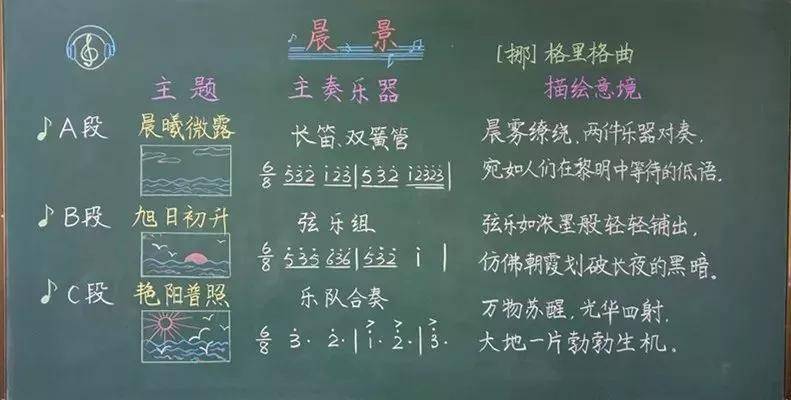 晨景
[挪]格里格曲
主题 主奏乐器 描绘意境
A段 晨曦微露 长笛、双簧管 晨雾缭绕,两件乐器对奏,
6/8 532 123|532 12323| 宛如人们在黎明中等待的低语。
B段 旭日初升 弦乐组 弦乐如浓墨般轻轻铺出,
6/8 535 636|532 1 | 仿佛朝霞划破长夜的黑暗。
C段 艳阳普照 乐队合奏 万物苏醒,光华四射,
6/8 3. 2.|1. 2.|3. 大地一片勃勃生机。